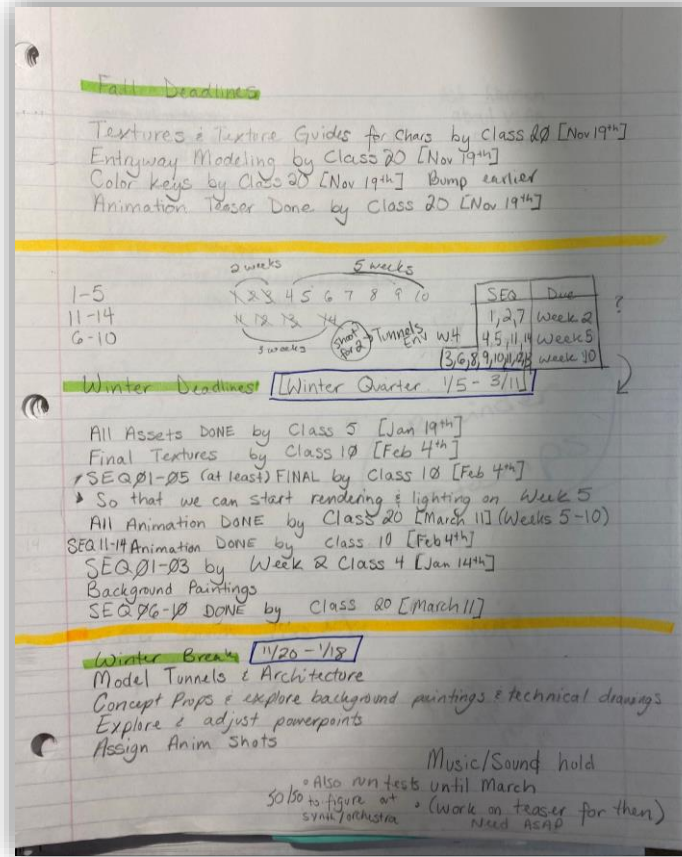 Fall Deadlines
Textures & Texture Guides for Chars by Class 20 [Nov 19th]
Entryway Modeling by Class 20 [Nov 19th]
Color keys by Class 20 [Nov 19th] Bump earlier
Animation Teaser Done by Class 20 [Nov 19th]
2 weeks 5 weeks
1-5 1 2 3 4 5 6 7 8 9 10
11-14 11 12 13 14
6-10 3 weeks
Shot for 2 → Tunnels Env W4
SEQ Due ?
1,2,7 Week 2
4,5,11,14 Week 5
3,6,8,9,10,11,12,13 Week 10
Winter Deadlines! [Winter Quarter 1/5 - 3/11]
All Assets DONE by Class 5 [Jan 19th]
Final Textures by Class 10 [Feb 4th]
SEQ01-05 (at least) FINAL by Class 10 [Feb 4th]
So that we can start rendering & lighting on Week 5
All Animation DONE by Class 20 [March 11] (Weeks 5-10)
SEQ11-14 Animation DONE by Class 10 [Feb 4th]
SEQ01-03 by Week 2 Class 4 [Jan 14th]
Background Paintings
SEQ06-10 DONE by Class 20 [March 11]
Winter Break 11/20 - 1/18
Model Tunnels & Architecture
Concept Props & explore background paintings & technical drawings
Explore & adjust powerpoints
Assign Anim Shots
Music/Sound hold
until March
• (Work on teaser for then)
Need ASAP
• Also run tests
50/50 to figure out
synth/orchestra